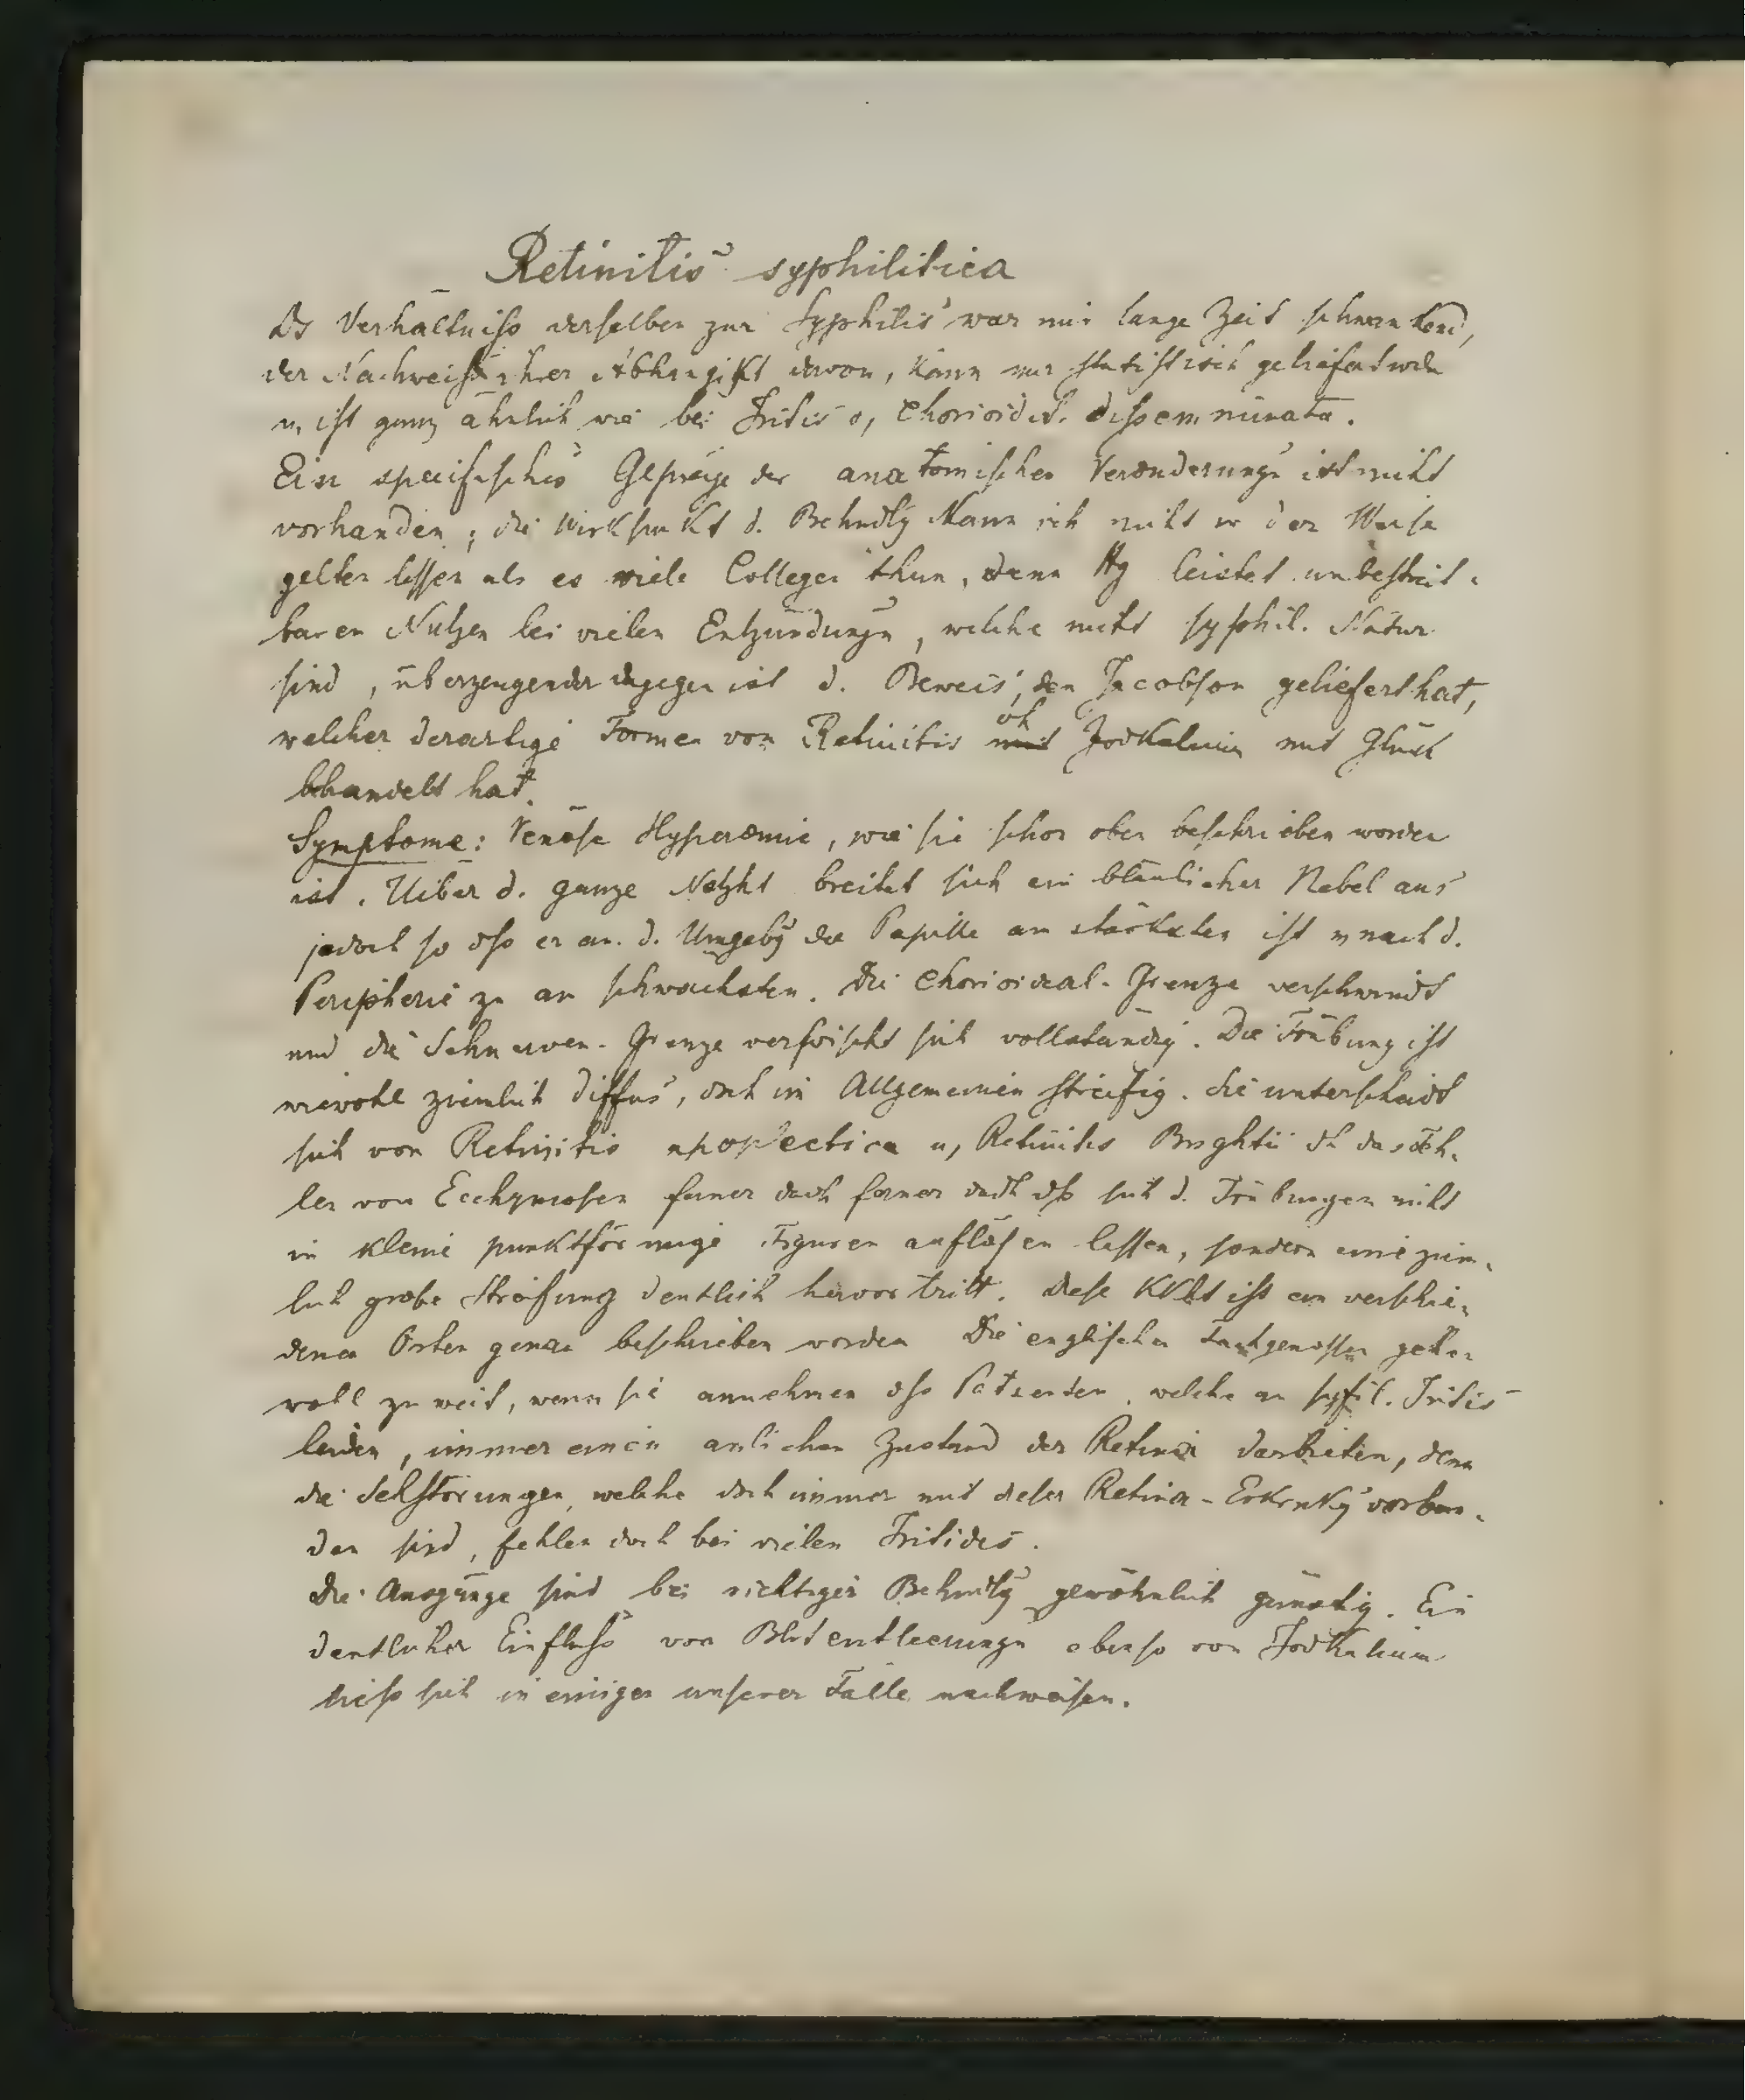 Retinitis syphilitica
Ds Verhältniss derselben zur Syphilis war mir lange Zeit schwankend,
der Nachweiss ihrer Abhängikt davon, kann nur statistisch geliefert werdn
u, ist ganz ähnlich wie bei Iritis o, Chorioidit. dissemminata.
Ein specifisches Gepräge der anatomischen Veränderungn ist nicht
vorhanden; die Wirksmkt d. Behndlg kann ich nicht in der Weise
gelten lassen als es viele Collegen thun, denn Hg leistet unbestreit-
baren Nutzen bei vielen Entzündungn, welche nicht syphil. Natur
sind, überzeugender dagegen ist d. Beweis, den Jacobson geliefert hat,
welcher derartige Formen von Retinitis oh Jodkalium mit Glück
behandelt hat.
Symptome: Venöse Hyperæmie, wie sie schon oben beschrieben worden
ist. Ueber d. ganze Netzht breitet sich ein bläulicher Nebel aus
jedoch so dss er an. d. Umgebg der Papille am stärksten ist u, nach d.
Peripherie zu am schwächsten. Die Chorioideal-Grenze verschwindt
und die Sehnerven-Grenze verwischt sich vollständig. Die Trübung ist
wiewohl ziemlich diffus, doch im Allgemeinen streifig. Sie unterscheidt
sich von Retinitis apoplectica u, Retinitis Brightii dh das Feh-
len von Ecchymosen ferner dadh ferner dadh dss sich d. Trübungen nicht
in kleine punktförmige Figuren auflösen lassen, sondern eine ziem-
lich grobe Streifung deutlich hervortritt. Diese Kkht ist an verschie-
denen Orten genau beschrieben worden Die englischen Fachgenossen gehen
wohl zu weit, wenn sie annehmen dss Patienten, welche an syfil. Iritis
leiden, immer einen änlichen Zustand der Retina darbieten, denn
die Sehstörungen, welche doch immer mit dieser Retina-Erkrnkg vorban-
den sind, fehlen doch bei vielen Iritides.
Die Ausgänge sind bei richtiger Behndlg gewöhnlich günstig. Ein
deutlicher Einfluss von Blutentleerungn ebenso von Jodkalium
liess sich in einigen unserer Fälle nachweisen.